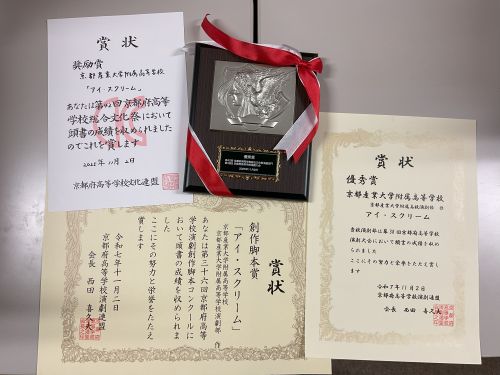 賞状
奨励賞
京都産業大学附属高等学校
「アイ・スクリーム」
あなたは第42回京都府高等
学校総合文化祭において
頭書の成績を収められました
のでこれを賞します
2025年11月2日
京都府高等学校文化連盟
優秀賞
賞状
優秀賞
京都産業大学附属高等学校
京都産業大学附属高校演劇部 作
アイ・スクリーム
演劇大会において頭書の成績を収め
られました
ここにその努力と栄誉をたたえ賞しま
す
令和7年11月2日
京都府高等学校演劇連盟
会長 西田 喜久夫
賞状
創作脚本賞
「アイ・スクリーム」
京都産業大学附属高等学校
京都産業大学附属高等学校演劇部 作
あなたは第三十六回京都府高等
学校演劇創作脚本コンクールに
おいて頭書の成績を収められまし
た
ここにその努力と栄誉をたたえ
賞します
令和七年十一月二日
京都府高等学校演劇連盟
会長 西田 喜久夫